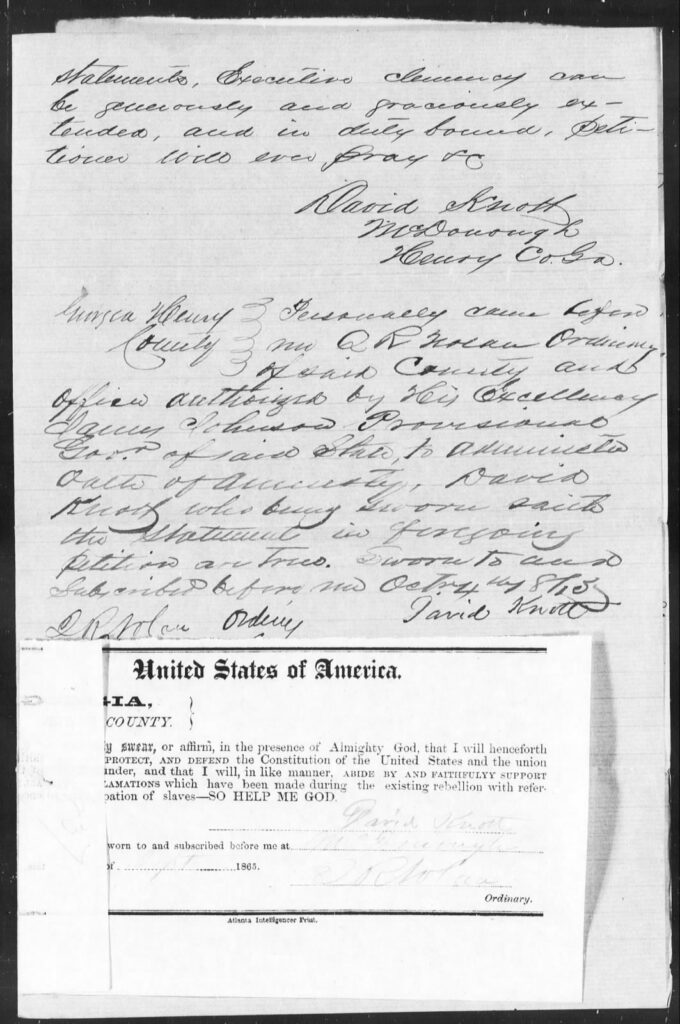 statements, Executive clemency can
be generously and graciously ex-
tended, and in duty bound, Peti-
tioner will ever pray &c
David Knott
McDonough
Henry Co. Ga.
Georgia Henry
County
Personally came before
me Q R Nolan Ordinary
of said County and
officer authorized by His Excellency
James Johnson Provisional
Gov.r of said State, to administer
Oath of Amnesty, David
Knott who being sworn saith
the statements in foregoing
petition are true. Sworn to and
Subscribed before me Octr. 4th 1865
David Knott
Q R Nolan Ordiny
United States of America.
IA,
COUNTY.
swear, or affirm, in the presence of Almighty God, that I will henceforth
PROTECT, AND DEFEND the Constitution of the United States and the union
nder, and that I will, in like manner, ABIDE BY AND FAITHFULYY SUPPORT
LAMATIONS which have been made during the existing rebellion with refer-
pation of slaves—SO HELP ME GOD.
David Knott
worn to and subscribed before me at McDonough
of 1865.
Q R Nolan
Ordinary.
Atlanta Intelligencer Print.